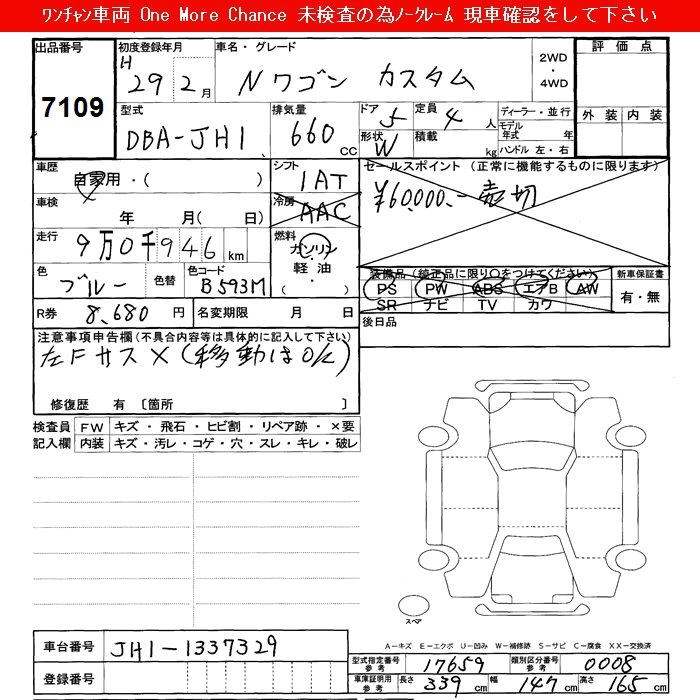 ﾜﾝﾁｬﾝ車両 One More Chance 未検査の為ﾉｰｸﾚｰﾑ 現車確認をして下さい
出品番号 初度登録年月 車名・グレード 2WD・4WD 評価点
H 29 2月 Nワゴン カスタム
7109
型式 排気量 ドア 5 定員 4人 ディーラー・並行 外装 内装
DBA-JH1 660 cc 形状 W 積載 kg モデル年式 年
ハンドル 左・右
車歴 自家用・( ) シフト 1AT セールスポイント (正常に機能するものに限ります)
車検 年 月( 日) 冷房 AAC ¥60,000.-売切
走行 9万0千946km 燃料 ガソリン・軽油・( )
色 ブルー 色替 色コード B593M 装備品 (純正品に限り○をつけてください) 新車保証書
PS PW ABS エアB AW 有・無
SR ナビ TV カワ
R券 8,680円 名変期限 月 日 後日品
注意事項申告欄(不具合内容等は具体的に記入して下さい)
左Fサス×(移動はOK)
修復歴 有 〔箇所 〕
検査員記入欄 FW キズ・飛石・ヒビ割・リペア跡・×要
内装 キズ・汚レ・コゲ・穴・スレ・キレ・破レ
スペア
A-キズ E-エクボ U-凹み W-補修跡 S-サビ C-腐食 XX-交換済
車台番号 JH1-1337329
型式指定番号 参考 17659 類別区分番号 参考 0008
登録番号 車庫証明用 参考 長さ 339cm 幅 147cm 高さ 165cm